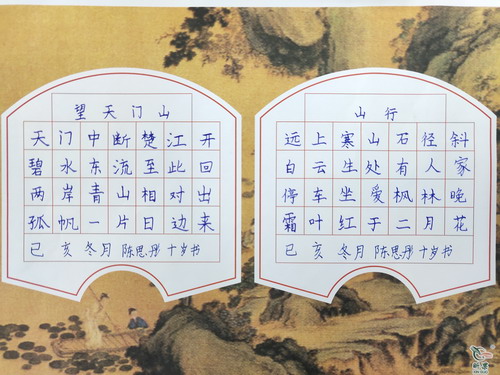 望天门山
天门中断楚江开
碧水东流至此回
两岸青山相对出
孤帆一片日边来
己亥冬月陈思彤十岁书
山行
远上寒山石径斜
白云生处有人家
停车坐爱枫林晚
霜叶红于二月花
己亥冬月陈思彤十岁书